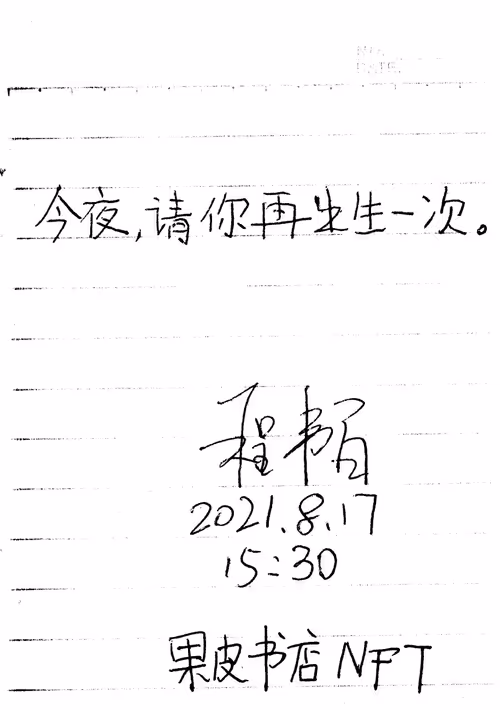 NO.
DATE
今夜,请你再出生一次。
程书眉
2021.8.17
15:30
果皮书店 NFT